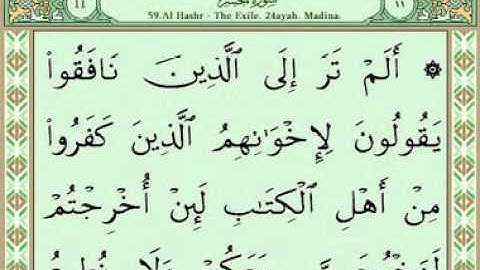 11 سورة الحشر ١١
59.Al Hashr - The Exile. 24ayah. Madina.
۞ أَلَمْ تَرَ إِلَى ٱلَّذِينَ نَافَقُوا۟
يَقُولُونَ لِإِخْوَٰنِهِمُ ٱلَّذِينَ كَفَرُوا۟
مِنْ أَهْلِ ٱلْكِتَـٰبِ لَئِنْ أُخْرِجْتُمْ